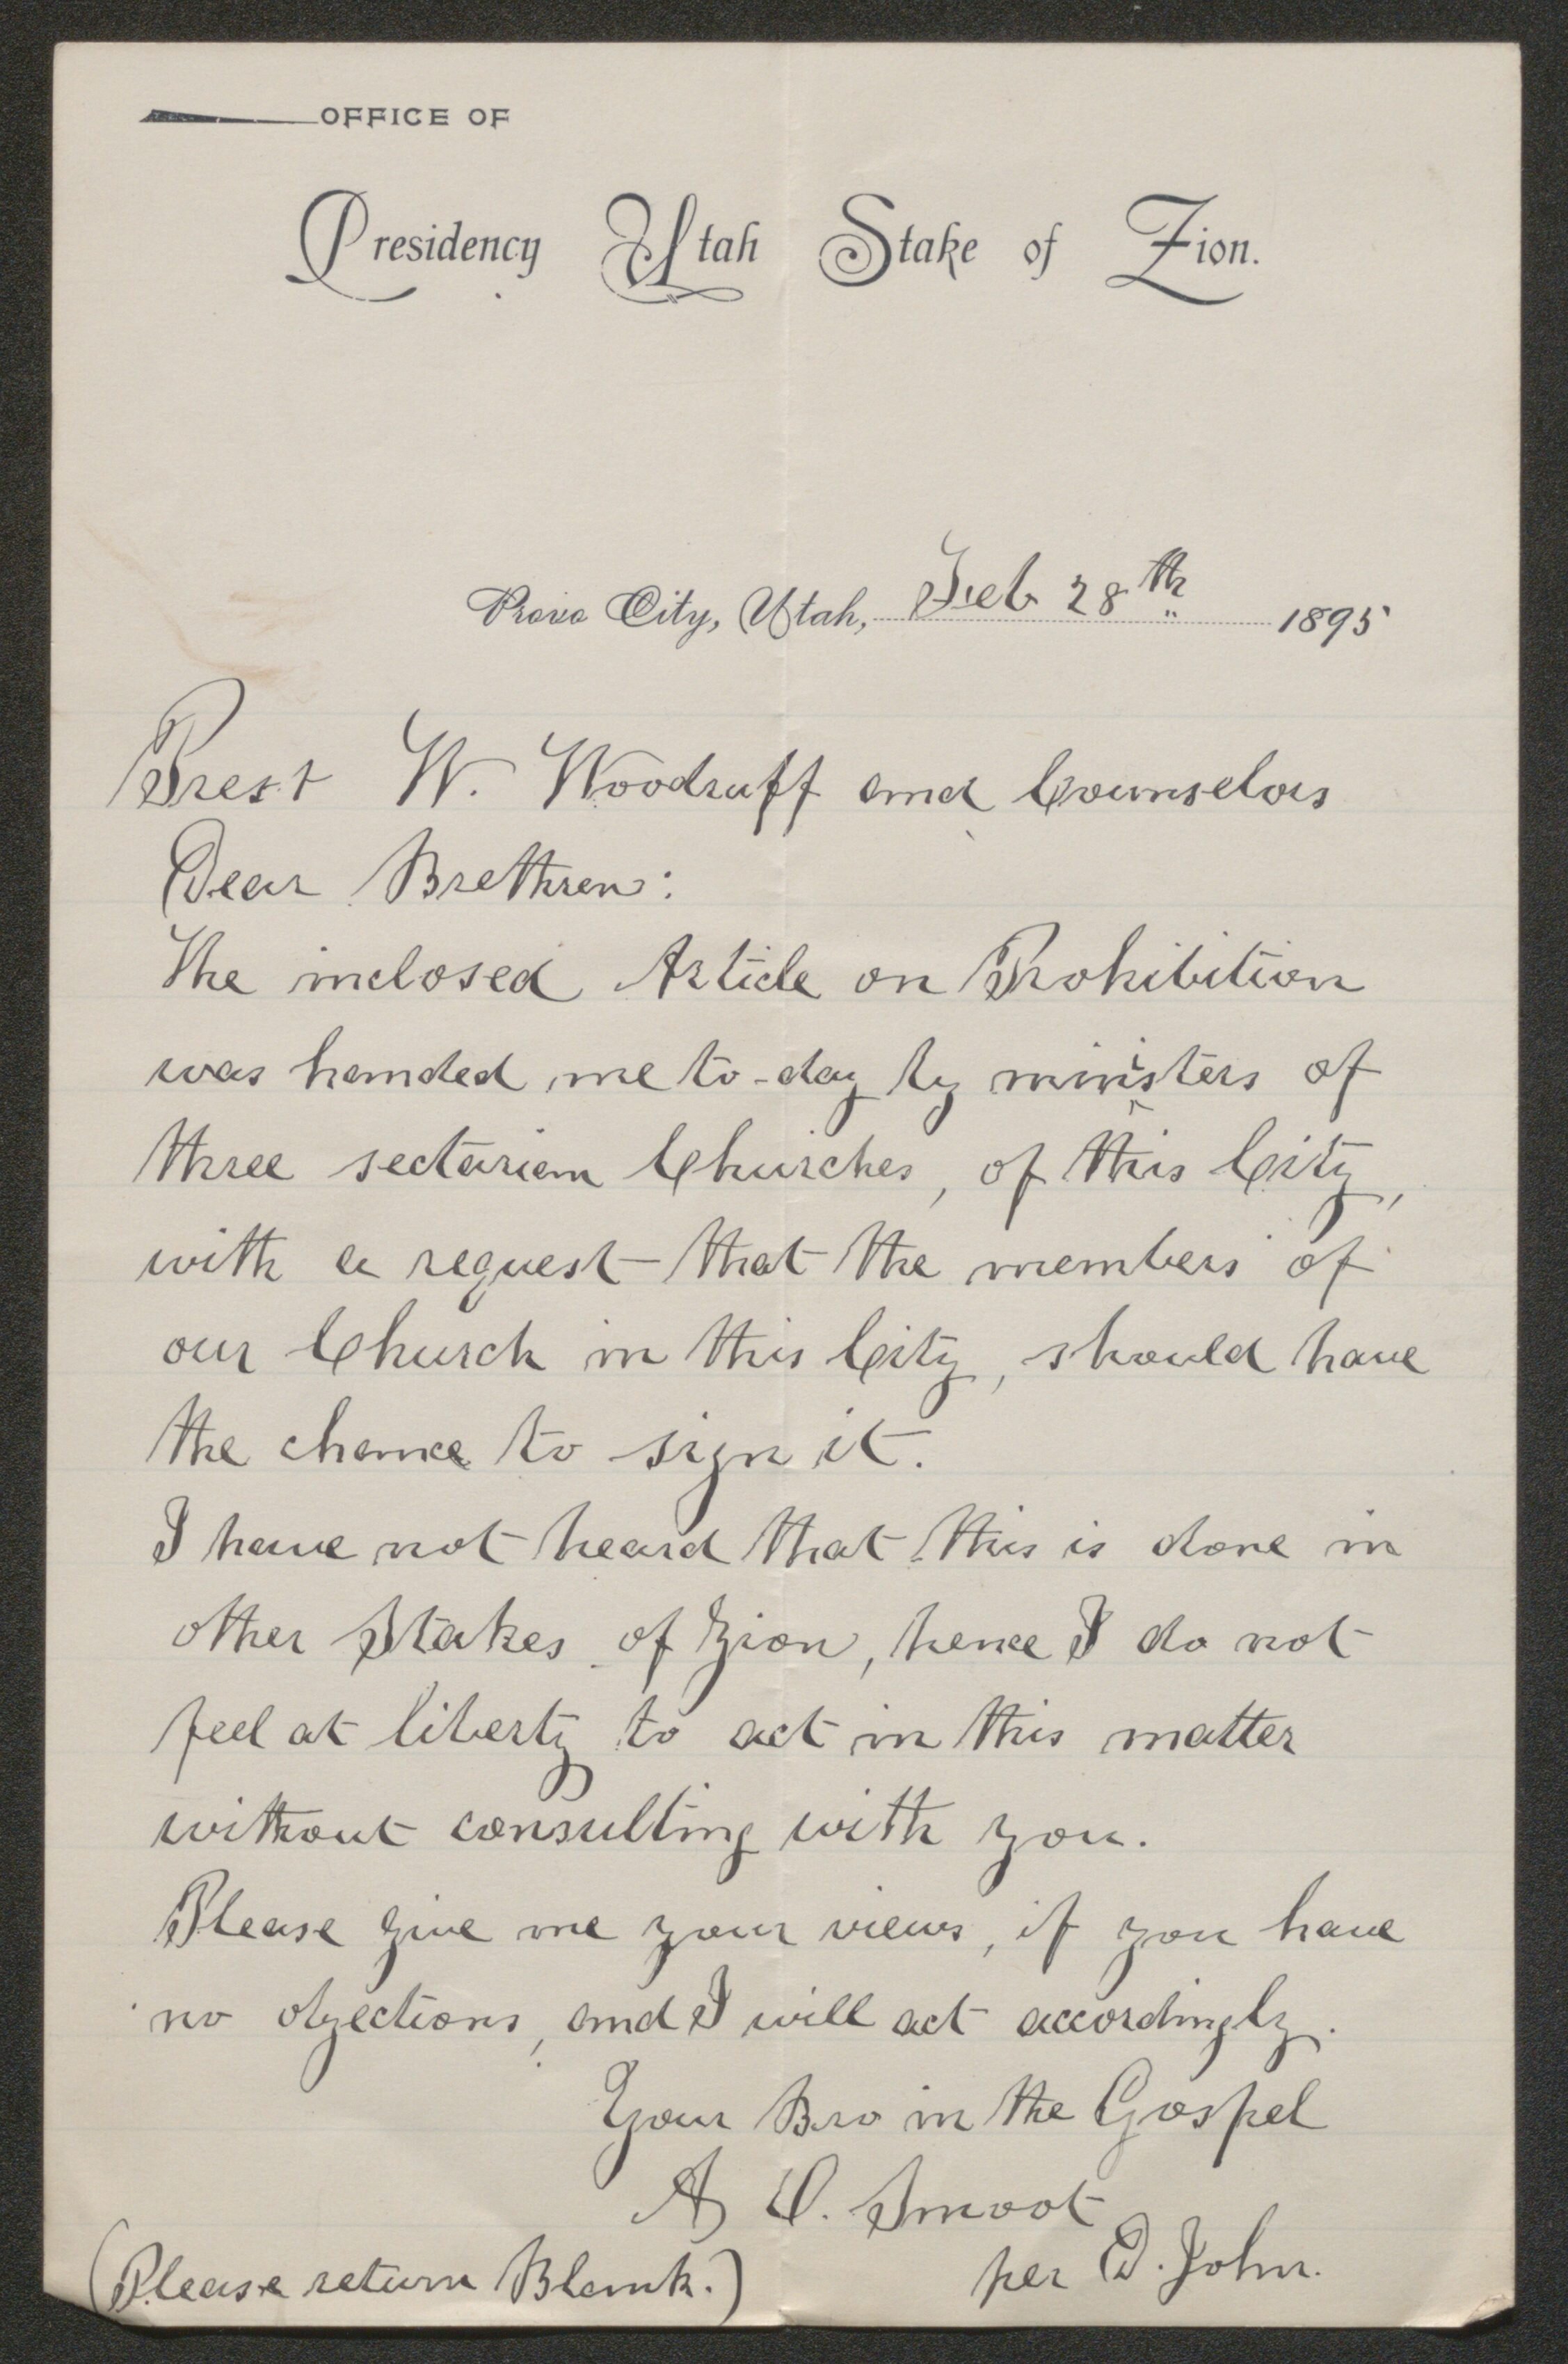 OFFICE OF
Presidency Utah Stake of Zion.
Provo City, Utah, Feb 28th 1895
Prest W. Woodruff and Counselors
Dear Brethren:
The inclosed Article on Prohibition
was handed me to-day by ministers of
three sectarian Churches, of this City,
with a request that the members of
our Church in this City, should have
the chance to sign it.
I have not heard that this is done in
other Stakes of Zion, hence I do not
feel at liberty to act in this matter
without consulting with you.
Please give me your views, if you have
no objections, and I will act accordingly.
Your Bro in the Gospel
A O. Smoot
per D. John.
(Please return Blank.)